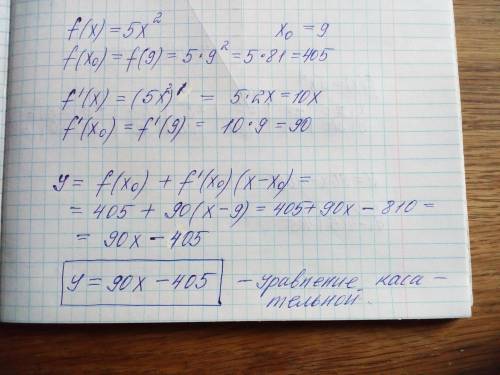 f(x) = 5x² x₀ = 9
f(x₀) = f(9) = 5·9² = 5·81 = 405
f'(x) = (5x²)' = 5·2x = 10x
f'(x₀) = f'(9) = 10·9 = 90
y = f(x₀) + f'(x₀)(x-x₀) =
= 405 + 90(x-9) = 405+90x - 810 =
= 90x - 405
y = 90x - 405 - уравнение каса-
тельной.